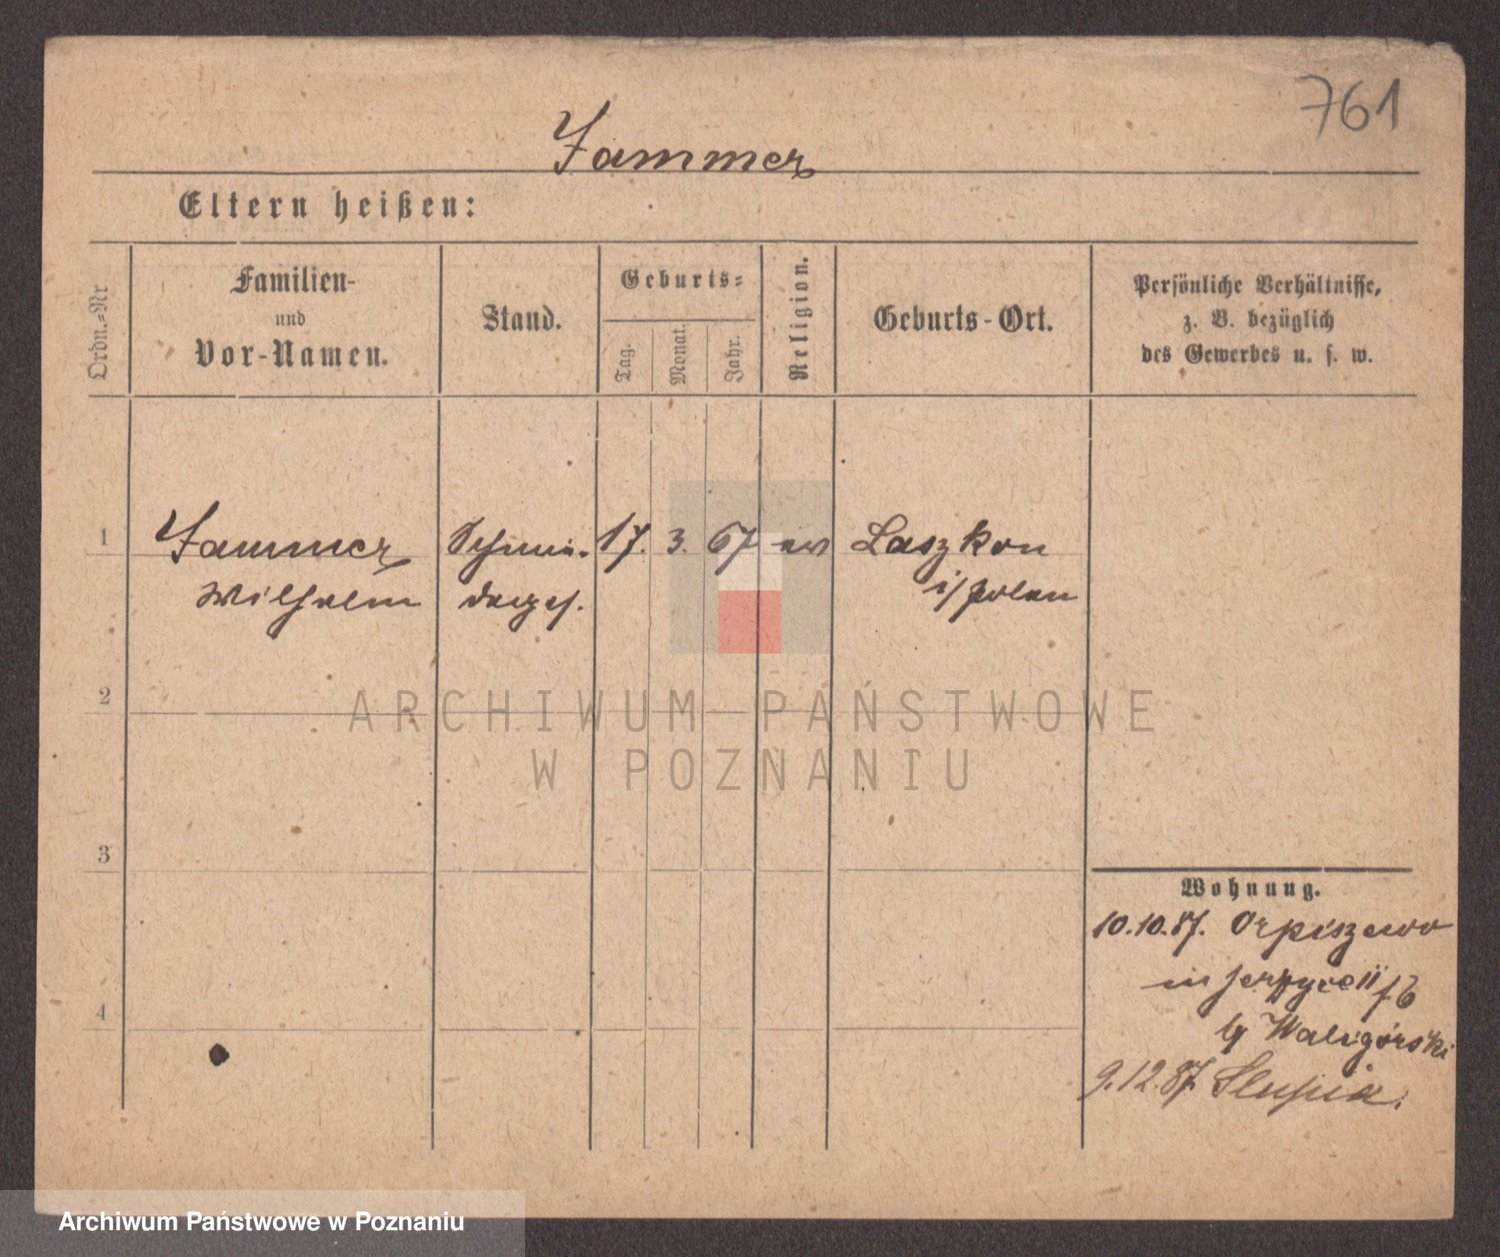 761
Jammer
Eltern heißen:
Ordn.=Nr
Familien-
und
Vor-Namen.
Stand.
Geburts=
Tag.
Monat.
Jahr.
Religion.
Geburts-Ort.
Persönliche Verhältnisse,
z. B. bezüglich
des Gewerbes u. s. w.
1 Jammer Schnei- 17. 3. 67 ev Laszkow
Wilhelm derges. i/Polen
2
ARCHIWUM PAŃSTWOWE
W POZNANIU
3
Wohnung.
10.10.87. Orpiszewo
in
4
Waligórski
9.12.87 Slupia.
Archiwum Państwowe w Poznaniu